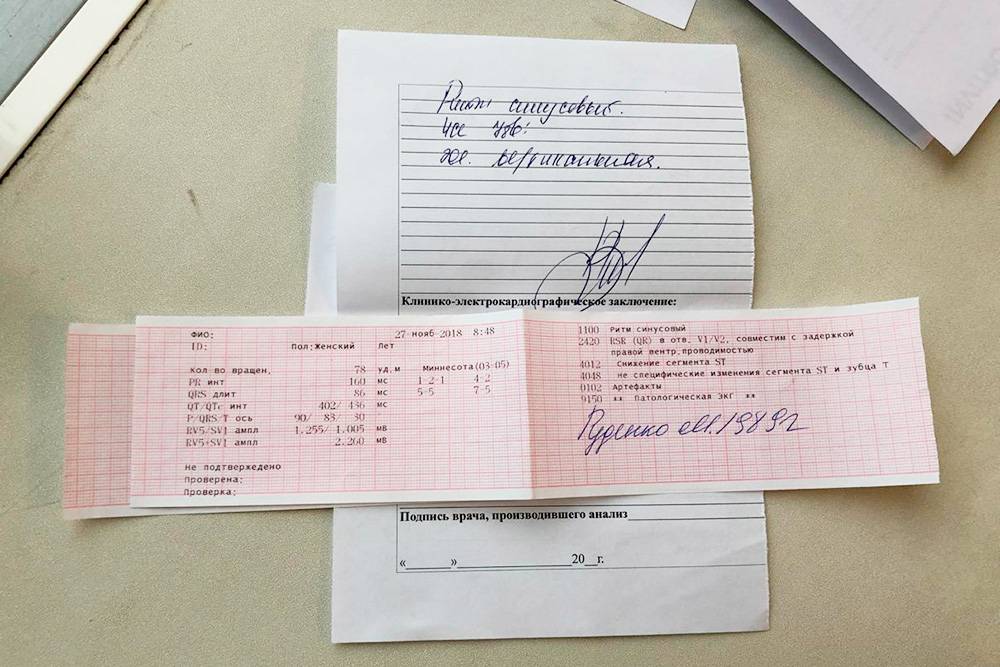 Ритм синусовый.
ЧСС 78'
эл. вертикальная.
Клинико-электрокардиографическое заключение:
ФИО: 27-нояб-2018 8:48
ID: Пол:Женский Лет
Кол во вращен, 78 уд,м Миннесота(03-05)
PR инт 160 мс 1-2-1 4-2
QRS длит 86 мс 5-5 7-5
QT/QTc инт 402/ 436 мс
P/QRS/T ось 90/ 83/ 30
RV5/SV1 ампл 1.255/ 1.005 мВ
RV5+SV1 ампл 2.260 мВ
Не подтверждено
Проверена:
Проверка:
1100 Ритм синусовый
2420 RSR (QR) в отв. V1/V2, совместим с задержкой
правой вентр,проводимостью
4012 Снижение сегмента ST
4048 не специфические изменения сегмента ST и зубца T
0102 Артефакты
9150 ** Патологическая ЭКГ **
Руденко М. 1989г
Подпись врача, производившего анализ
« » 20 г.